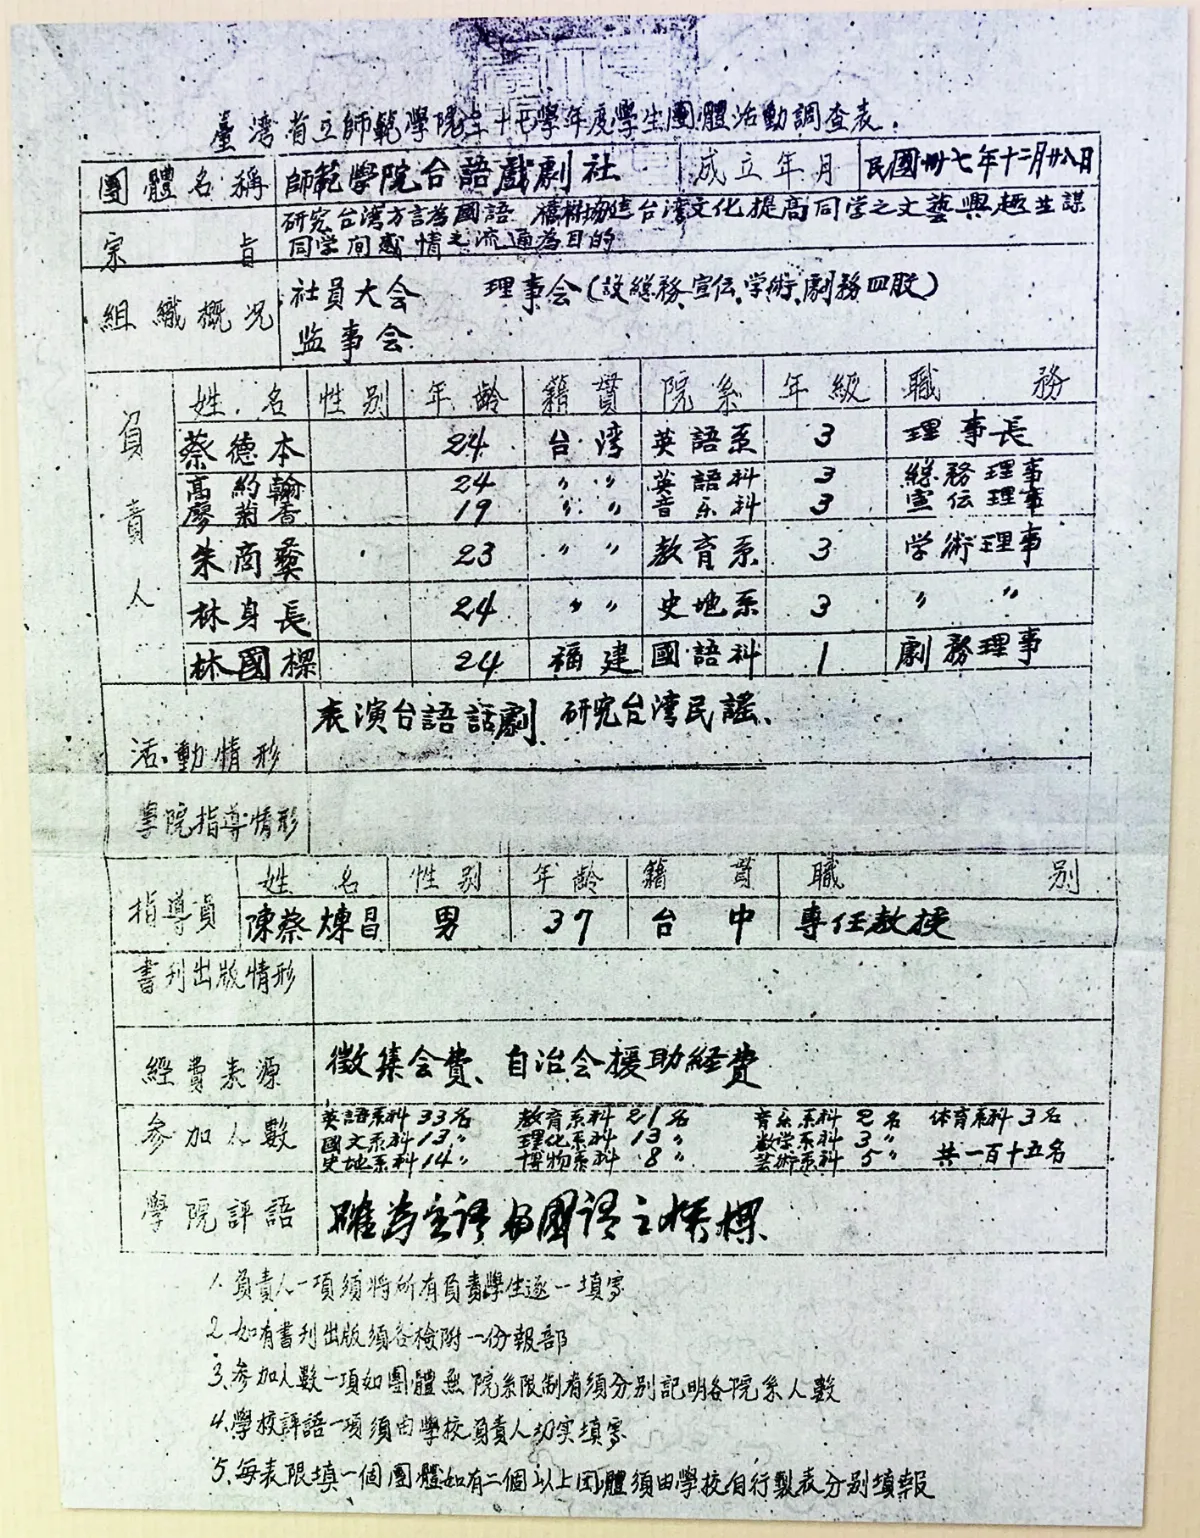 臺灣省立師範學院三十七學年度學生團體活動調查表.
團體名稱 師範學院台語戲劇社 成立年月 民國卅七年十二月廿八日
宗旨 研究台湾方言為國語 橋樑協進台湾文化提高同学之文藝興趣並謀
同学间感情之流通為目的
組織概况 社員大会 理事会(設總務、宣伝、学術、劇務四股)
监事会
負責人 姓名 性别 年齡 籍貫 院系 年級 職務
蔡德本 24 台湾 英語系 3 理事長
高約翰 24 〃〃 英語科 3 總務理事
廖菊香 19 〃〃 音乐科 3 宣伝理事
朱商彝 23 〃〃 教育系 3 学術理事
林身長 24 〃〃 史地系 3 〃 〃
林國樑 24 福建 國語科 1 劇務理事
活動情形 表演台語話劇、研究台湾民謠、
學院指導情形
指導員 姓名 性别 年齡 籍貫 職别
陳蔡煉昌 男 37 台中 專任教授
書刊出版情形
經費來源 徵集会費、自治会援助経費
參加人數 英語系科33名 教育系科21名 音乐系科2名 体育系科3名
國文系科13〃 理化系科13〃 数学系科3〃
史地系科14〃 博物系科8〃 芸術系科5〃 共一百十五名
學院評語 確為台語与國語之橋樑
1.負責人一項須将所有負責學生逐一填寫
2.如有書刊出版須各檢附一份報部
3.参加人數一項如團體無院系限制有須分别記明各院系人數
4.學校評語一項須由學校負責人切实填寫
5.每表限填一個團體如有二個以上团體須由學校自行製表分别填報